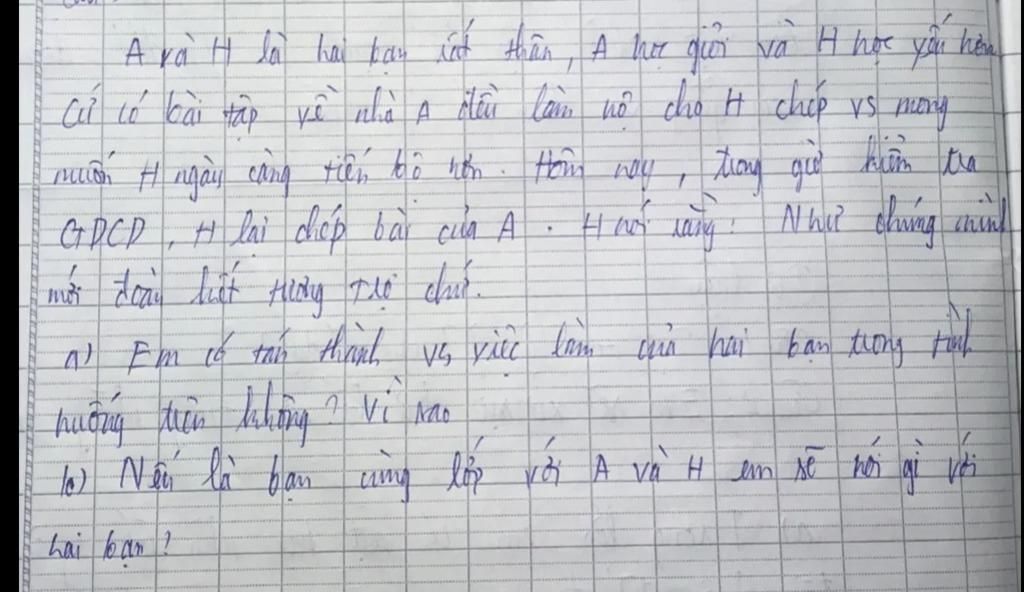 A và H là hai bạn rất thân, A học giỏi và H học yếu hơn
Cứ có bài tập về nhà A đều làm hộ cho H chép vs mong
muốn H ngày càng tiến bộ hơn. Hôm nay, trong giờ kiểm tra
GDCD, H lại chép bài của A. H nói rằng: Như chúng mình
mới đoàn kết tương trợ chứ.
a) Em có tán thành vs việc làm của hai bạn trong tình
huống trên không? Vì sao
b) Nếu là bạn cùng lớp với A và H em sẽ nói gì với
hai bạn?